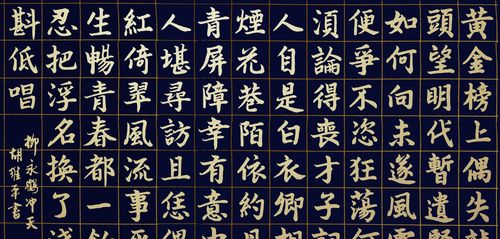 黃金榜上偶失
頭望明代暫遺
如何向未遂風
便爭不恣狂蕩
須論得喪才子
人自是白衣卿
煙花巷陌依約
青屏障幸有意
人堪尋訪且恁
紅倚翠風流事
生暢青春都一
忍把浮名換了
斟低唱
柳永鶴沖天
胡維平書